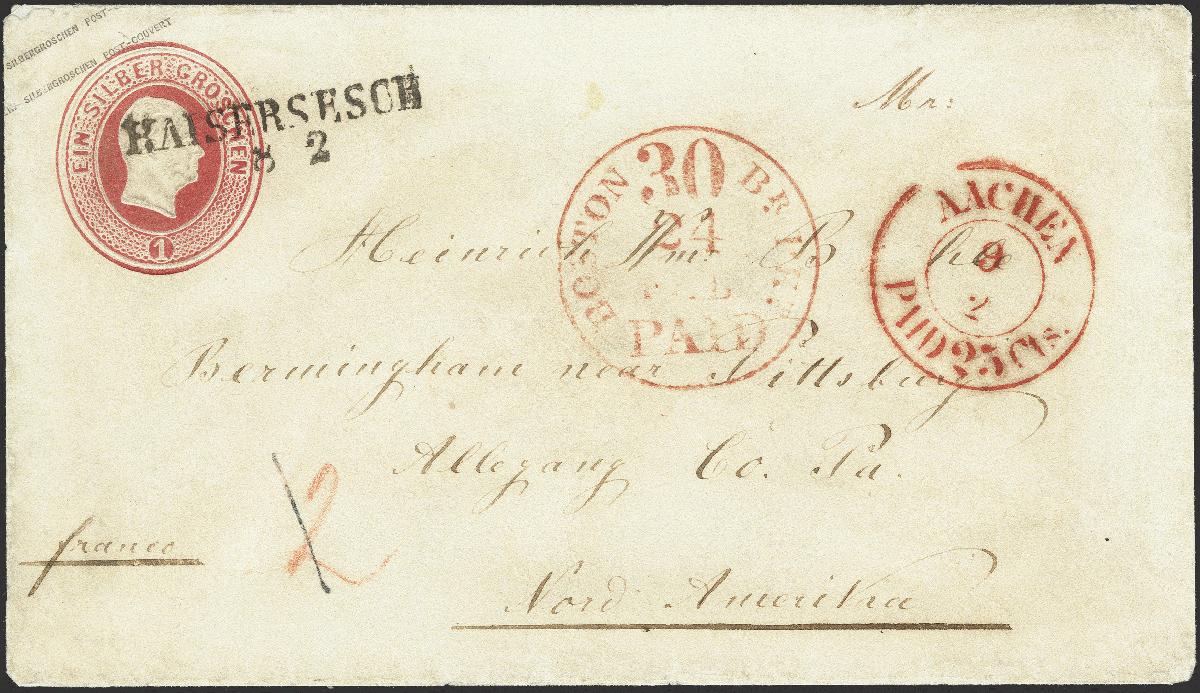 SILBERGROSCHEN POST-
SILBERGROSCHEN POST-COUVERT
EIN SILBER GROSCHEN
1
KAISERSESCH
8 2
Mr:
BOSTON BR. PKT.
30
24
FEB
PAID
AACHEN
9
2
PAID 25 Cts.
Heinrich Wm.
Bermingham near Pittsburg
Allegany Co. Pa.
franco
2
Nord Amerika